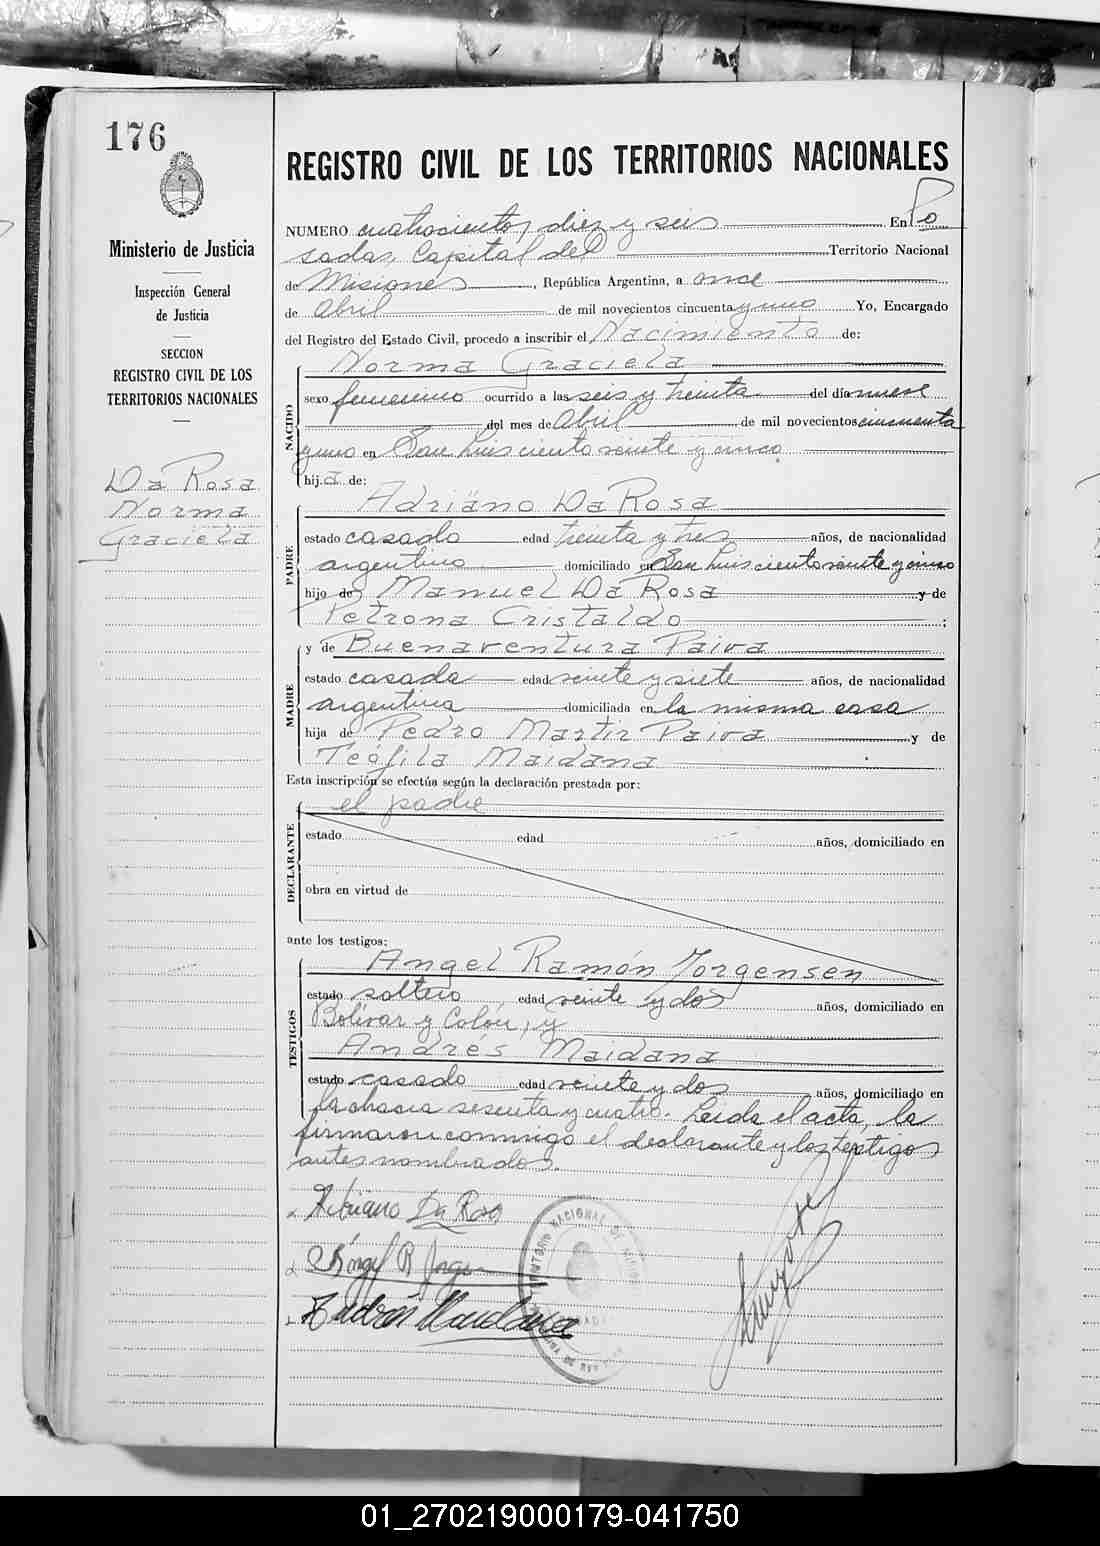 176
Ministerio de Justicia
Inspección General
de Justicia
SECCION
REGISTRO CIVIL DE LOS
TERRITORIOS NACIONALES
Da Rosa
Norma
Graciela
REGISTRO CIVIL DE LOS TERRITORIOS NACIONALES
NUMERO cuatrocientos diez y seis En Po
sadas, Capital del Territorio Nacional
de Misiones, República Argentina, a once
de Abril de mil novecientos cincuenta y uno Yo, Encargado
del Registro del Estado Civil, procedo a inscribir el Nacimiento de:
NACIDO
Norma Graciela
sexo femenino ocurrido a las seis y treinta del día nueve
del mes de Abril de mil novecientos cincuenta
y uno en San Luis ciento veinte y cinco
hija de:
PADRE
Adriano Da Rosa
estado casado edad treinta y tres años, de nacionalidad
argentino domiciliado en San Luis ciento veinte y cinco
hijo de Manuel Da Rosa y de
Petrona Cristaldo;
MADRE
y de Buenaventura Paiva
estado casada edad veinte y siete años, de nacionalidad
argentina domiciliada en la misma casa
hija de Pedro Martir Paiva y de
Teófila Maidana
Esta inscripción se efectúa según la declaración prestada por:
DECLARANTE
el padre
estado edad años, domiciliado en
obra en virtud de
ante los testigos:
TESTIGOS
Angel Ramón Jorgensen
estado soltero edad veinte y dos años, domiciliado en
Bolívar y Colón, y
Andrés Maidana
estado casado edad veinte y dos años, domiciliado en
La chacra sesenta y cuatro. Leida el acta, la
firmaron conmigo el declarante y los testigos
antes nombrados.
Adriano Da Rosa
Angel R Jorgen
Andrés Maidana
01_270219000179-041750